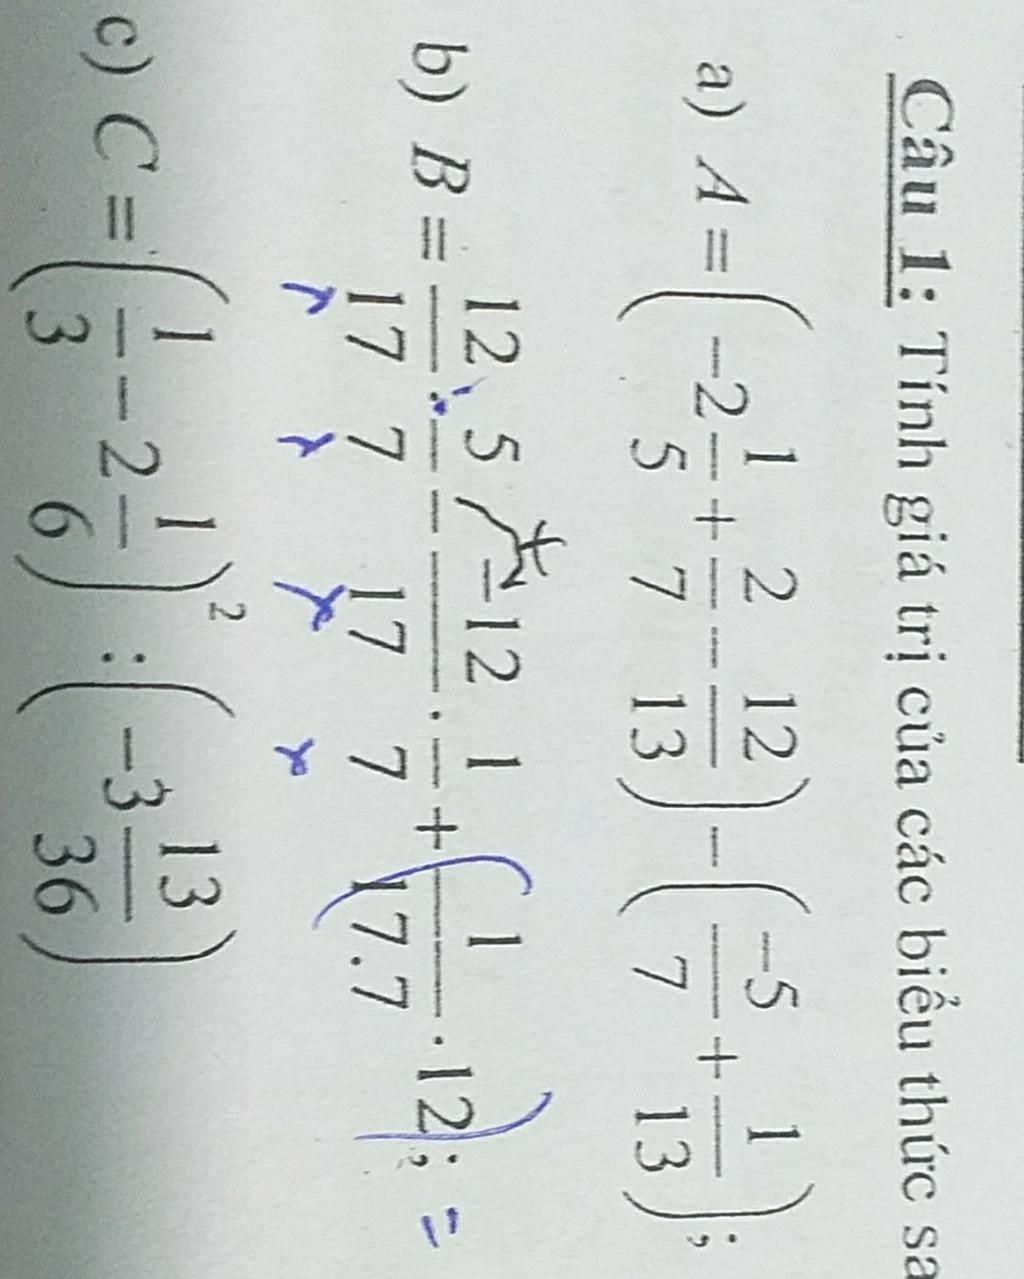 Câu 1: Tính giá trị của các biểu thức sa
a) A = (-2 1/5 + 2/7 - 12/13) - (-5/7 + 1/13);
b) B = 12/17 . 5/7 - -12/17 . 1/7 + 1/17.7 . 12; =
c) C = (1/3 - 2 1/6)² : (-3 13/36)